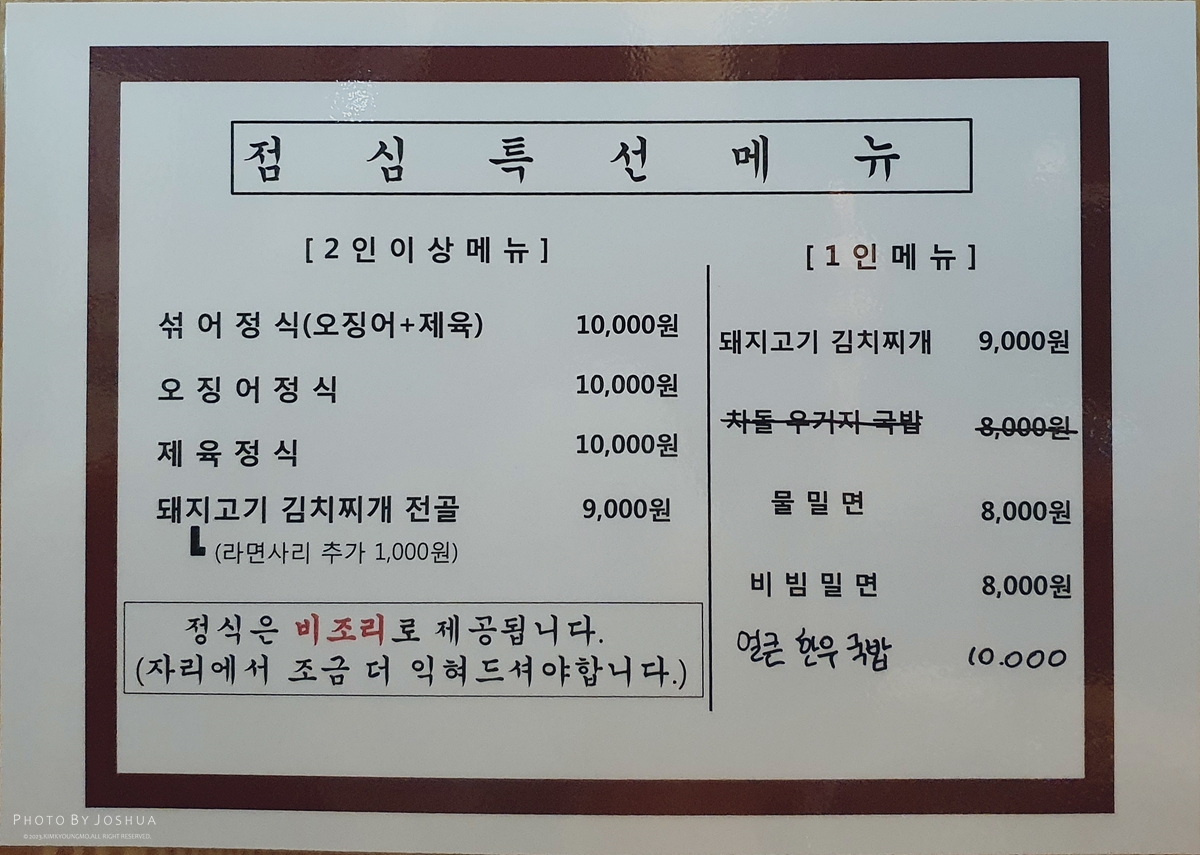 점 심 특 선 메 뉴
[ 2 인 이 상 메 뉴 ]
섞 어 정 식(오징어+제육) 10,000원
오 징 어 정 식 10,000원
제 육 정 식 10,000원
돼지고기 김치찌개 전골 9,000원
(라면사리 추가 1,000원)
정식은 비조리로 제공됩니다.
(자리에서 조금 더 익혀드셔야합니다.)
[ 1 인 메 뉴 ]
돼지고기 김치찌개 9,000원
차돌 우거지 국밥 8,000원
물 밀 면 8,000원
비 빔 밀 면 8,000원
얼큰 한우 국밥 10.000
PHOTO BY JOSHUA
© 2023.KIMKYOUNGMO.ALL RIGHT RESERVED.